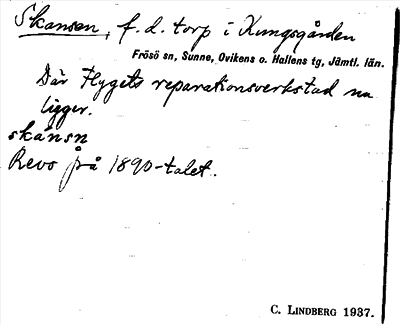 Skansen, f. d. torp i Kungsgården
Frösö sn, Sunne, Ovikens o. Hallens tg, Jämtl. län.
Där Flygets reparationsverkstad nu
ligger.
skánsn
Revs på 1890-talet.
C. LINDBERG 1937.